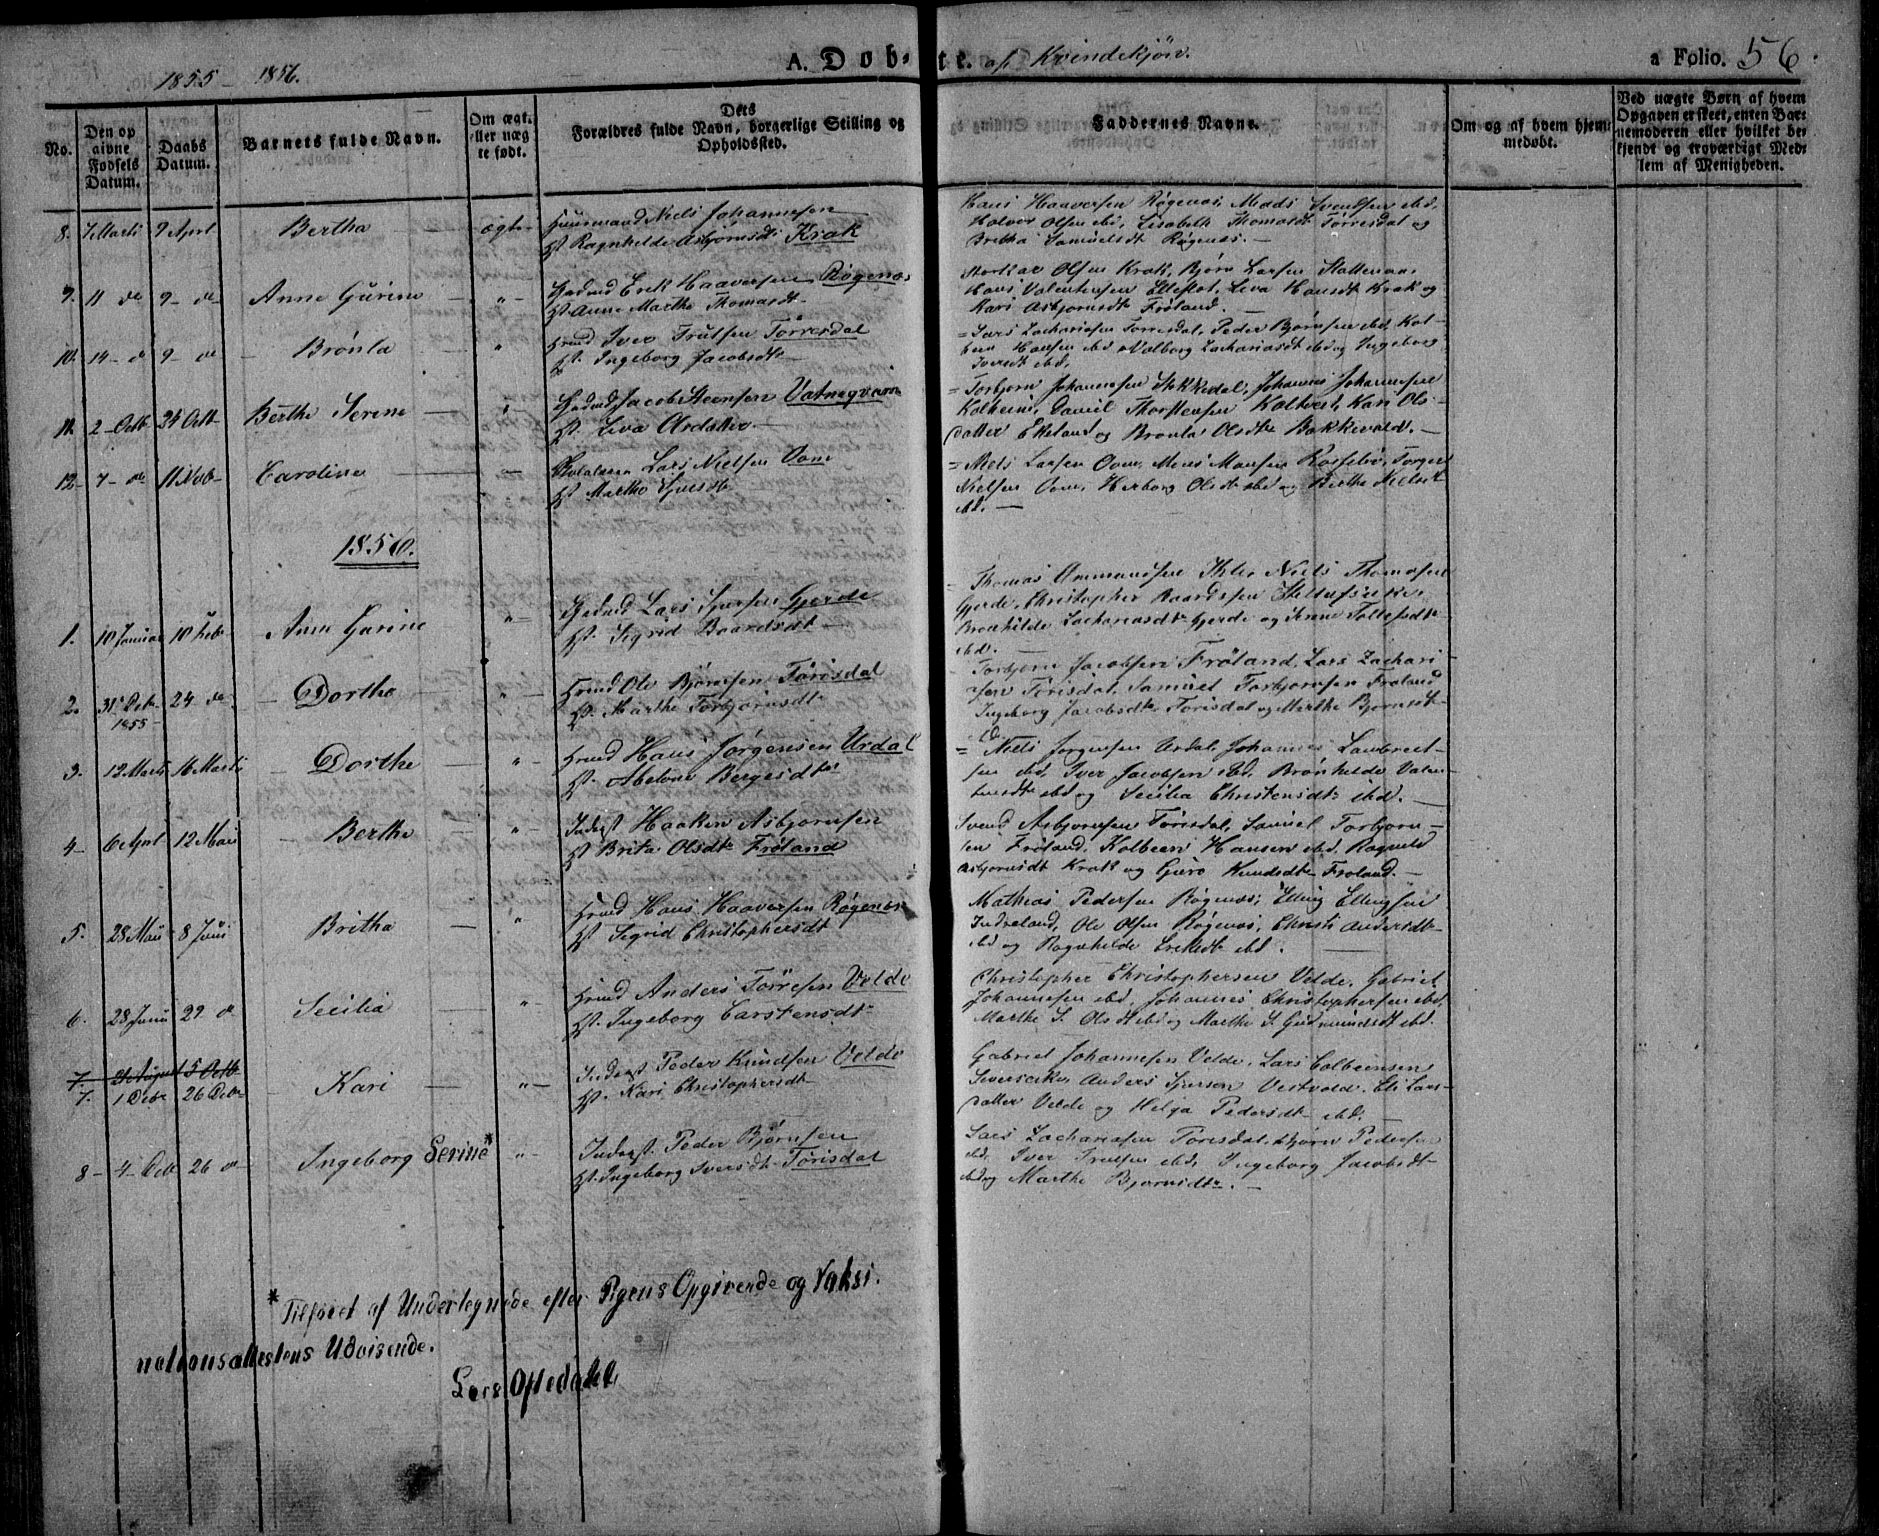 1855 - 1856.
A. Døbte. af Kvindekjön.
a Folio. 56.
No.
Den op
givne
Fødsels
Datum.
Daabs
Datum.
Barnets fulde Navn.
Om ægt.
eller uæg
te født.
Dets
Forældres fulde Navn, borgerlige Stilling og
Opholdssted.
Faddernes Navne.
Om og af hvem hjem:
medøbt.
Ved uægte Børn af hvem
Opgaven er skeet, enten Bar:
nemoderen eller hvilket be:
kjendt og troværdigt Med:
lem af Menigheden.
8. 7 Marti 9 April Bertha ægte Huusmand Niels Johannesen
H. Ragnhilde Asbjørnsdt Krak
Hans Haaversen Røgenæs, Mads Svendsen ebd.
Halvor Olsen ebd, Lisabeth Thomasdt Torresdal og
Britha Samuelsdt Røgenæs. -
9. 11 do 9 - do Anne Gurine - " - Grdmd Erik Haaversen Røgenæs
H. Anne Marthe Thomasdt -
Olsen Krak, Bjørn Larsen
Hans Valentinsen, Leva Hansdt Krak og
Kari Asbjørnsdt Frøland.
10. 14 - do 9 - do Brønla " Hmd Iver Trulsen Torresdal
H. Ingeborg Jacobsdt -
= Lars Zachariasen Torresdal, Peder Bjørnsen ebd Kol-
been Hansen ebd Valborg Zachariasdt ebd og Ingeborg
Iversdt ebd.
11. 2 - Octb 24 Octb Berthe Serine " Grdmd Jacob Steensen Vatneqvam
H. Leva Olsdatter -
= Torbjørn Johannesen Stokkedal, Johannes Johannesen
Kalheim, Daniel Thorstensen Kaltvert, Kari Ols-
datter Ekeland og Brønla Olsdt Bakkevold. -
12 - 7 - do 11 Nvb - Caroline Lars Nielsen Vom
H. Marthe
= Niels Larsen Vom, Mons Monsen, Torger
Nielsen Vom, Herborg Olsdt ebd og Berthe Nielsdt
ebd. -
1856.
1. 10 Januar 10 Febr Anne Gurine " - Grdmd Lars Sjursen Gjerde
H. Sigrid Baardsdt -
- Thomas Ommundsen, Niels Thomasen
Gjerde, Christopher Baardsen
Brønhilde Zachariasdt Gjerde og
ebd. -
2. 31 Octb
1855 - 24 do - Dorthe " Hmd Ole Bjørnsen Tørisdal
H. Marthe Torbjørnsdt
- Torbjørn Jacobsen Frøland, Lars Zachari-
sen Tørisdal, Samuel Torbjørnsen Frøland
Ingeborg Jacobsdt Tørisdal og Marthe Bjørnsdt -
ebd.
3. 12 Marti 16 Marti Dorthe " - Hmd Hans Jørgensen Urdal
H. Abelone Bergesdt
= Niels Jørgensen Urdal, Johannes Lambrect-
sen ebd. Iver Jacobsen ebd. Brønhilde Valen-
tinsdt ebd og Secilia Christensdt ebd. -
4 - 6 April 12 Mai Berthe " - Inderst Haaken Asbjørnsen
H. Brita Olsdt Frøland
Svend Asbjørnsen Tørisdal, Samuel Torbjørn-
sen Frøland, Kolbeen Hansen ebd. Ragnild
Asbjørnsdt Krak og Guro Knudsdt Frøland. -
5. 28 Mai 8 Juni Britha " Hmd Hans Haaversen Røgenæs
H. Sigrid Christophersdt
Mathias Pedersen Røgenæs, Elling Ellingsen
Indreland, Ole Olsen Røgenæs, Christi Andersdt
ebd og Ragnhilde Eriksdt ebd.
6. 28 Juni 29 do Secilia " Hmd Anders Torresen Velde
H. Ingeborg Carstensdt
Christopher Christophersen Velde, Gabriel
Johannesen ebd, Johannes Christophersen ebd.
Marthe S. Olsdt ebd og Marthe S. Gudmundsdt ebd.
7. August 5 Octb
7. 1 Octbr 26 Octbr Kari " - Inderst Peder Knudsen Velde
H. Kari Christophersdt
Gabriel Johannesen Velde, Lars Colbeensen
Anders Sjursen Vestvold, Eli Lars-
datter Velde og Helga Pedersdt ebd. -
8 - 4 - Octb 26 do - Ingeborg Serine* " - Inderst. Peder Bjørnsen
H. Ingeborg Iversdt Tørisdal
Lars Zachariasen Torisdal, Bjørn Pedersen
ebd. Iver Trulsen ebd. Ingeborg Jacobsdt
ebd og Marthe Bjørnsdt. -
* Tilføiet af Undertegnede efter Pigens Opgivende og Vaksi-
nationsattestens Udvisende.
Lars Oftedahl.